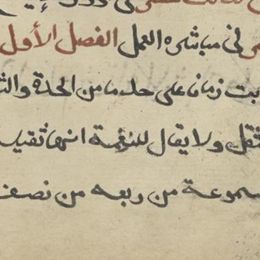 فى مباشرة العمل الفصل الأول
ثبت زمانا على حد ما من الحدة والثقل
فثقل ولا يقال للنغمة انها ثقيلة
مسموعة من ربعه من نصف